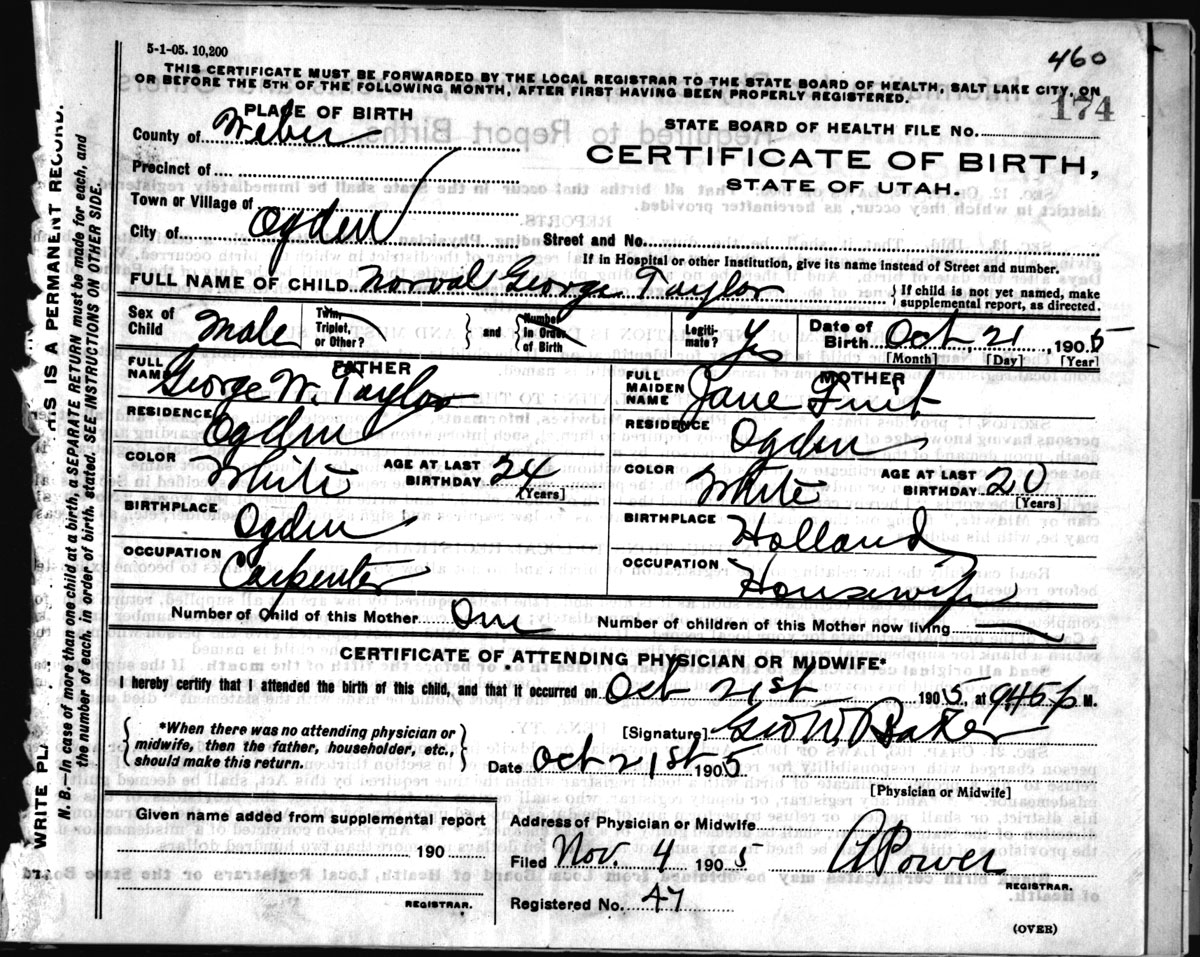 5-1-05. 10,200
460
THIS CERTIFICATE MUST BE FORWARDED BY THE LOCAL REGISTRAR TO THE STATE BOARD OF HEALTH, SALT LAKE CITY, ON
OR BEFORE THE 5TH OF THE FOLLOWING MONTH, AFTER FIRST HAVING BEEN PROPERLY REGISTERED.
174
PLACE OF BIRTH
STATE BOARD OF HEALTH FILE No.
County of Weber
CERTIFICATE OF BIRTH,
STATE OF UTAH.
Precinct of
Town or Village of
City of Ogden Street and No.
If in Hospital or other Institution, give its name instead of Street and number.
FULL NAME OF CHILD Norval George Taylor { If child is not yet named, make supplemental report, as directed.
Sex of Child Male Twin, Triplet, or Other? } and { Number in Order of Birth Legiti- mate? Yes Date of Birth Oct 21, 1905
[Month] [Day] [Year]
FATHER
FULL NAME George W. Taylor
RESIDENCE Ogden
COLOR White AGE AT LAST BIRTHDAY 24
[Years]
BIRTHPLACE Ogden
OCCUPATION Carpenter
MOTHER
FULL MAIDEN NAME Jane Fruit
RESIDENCE Ogden
COLOR White AGE AT LAST BIRTHDAY 20
[Years]
BIRTHPLACE Holland
OCCUPATION Housewife
Number of Child of this Mother One Number of children of this Mother now living
CERTIFICATE OF ATTENDING PHYSICIAN OR MIDWIFE*
I hereby certify that I attended the birth of this child, and that it occurred on Oct 21st 1905, at 945 p M.
{ *When there was no attending physician or midwife, then the father, householder, etc., should make this return. }
[Signature] Geo W Baker
Date Oct 21st 1905
[Physician or Midwife]
Given name added from supplemental report
190
REGISTRAR.
Address of Physician or Midwife
Filed Nov. 4 1905 Power
REGISTRAR.
Registered No. 47
(OVER)
WRITE PL
THIS IS A PERMANENT RECORD.
N. B.—In case of more than one child at a birth, a SEPARATE RETURN must be made for each, and
the number of each, in order of birth, stated. SEE INSTRUCTIONS ON OTHER SIDE.